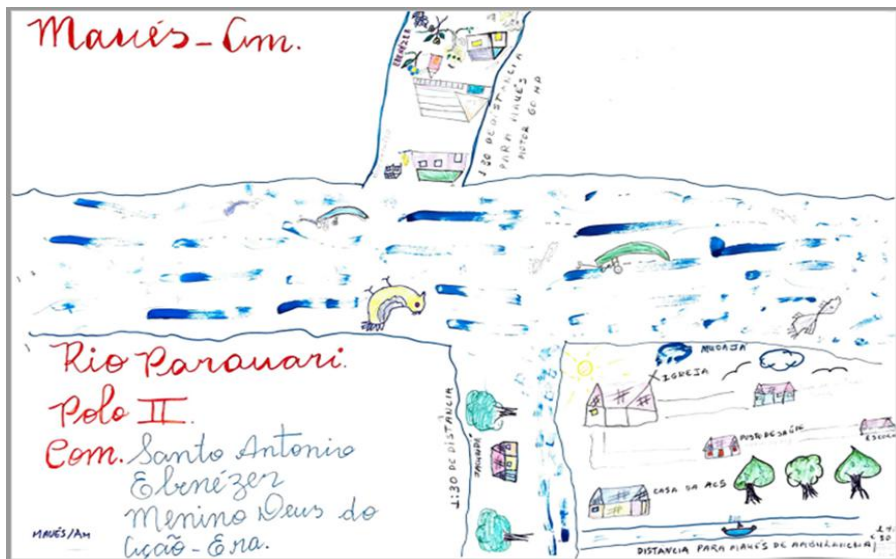 Maués-Am.
EBENÉZER
1:30 DE DISTANCIA
PARA MAUÉS
MOTOR 60 HP
Rio Parauari.
Polo II
Com. Santo Antonio
Ebenézer
Menino Deus do
MAUÉS/AM
1:30 DE DISTÂNCIA
MUCAJÁ
IGREJA
POSTO DE SAÚDE
ESCOLA
CASA DA ACS
DISTANCIA PARA MAUÉS DE AMBULANCHA